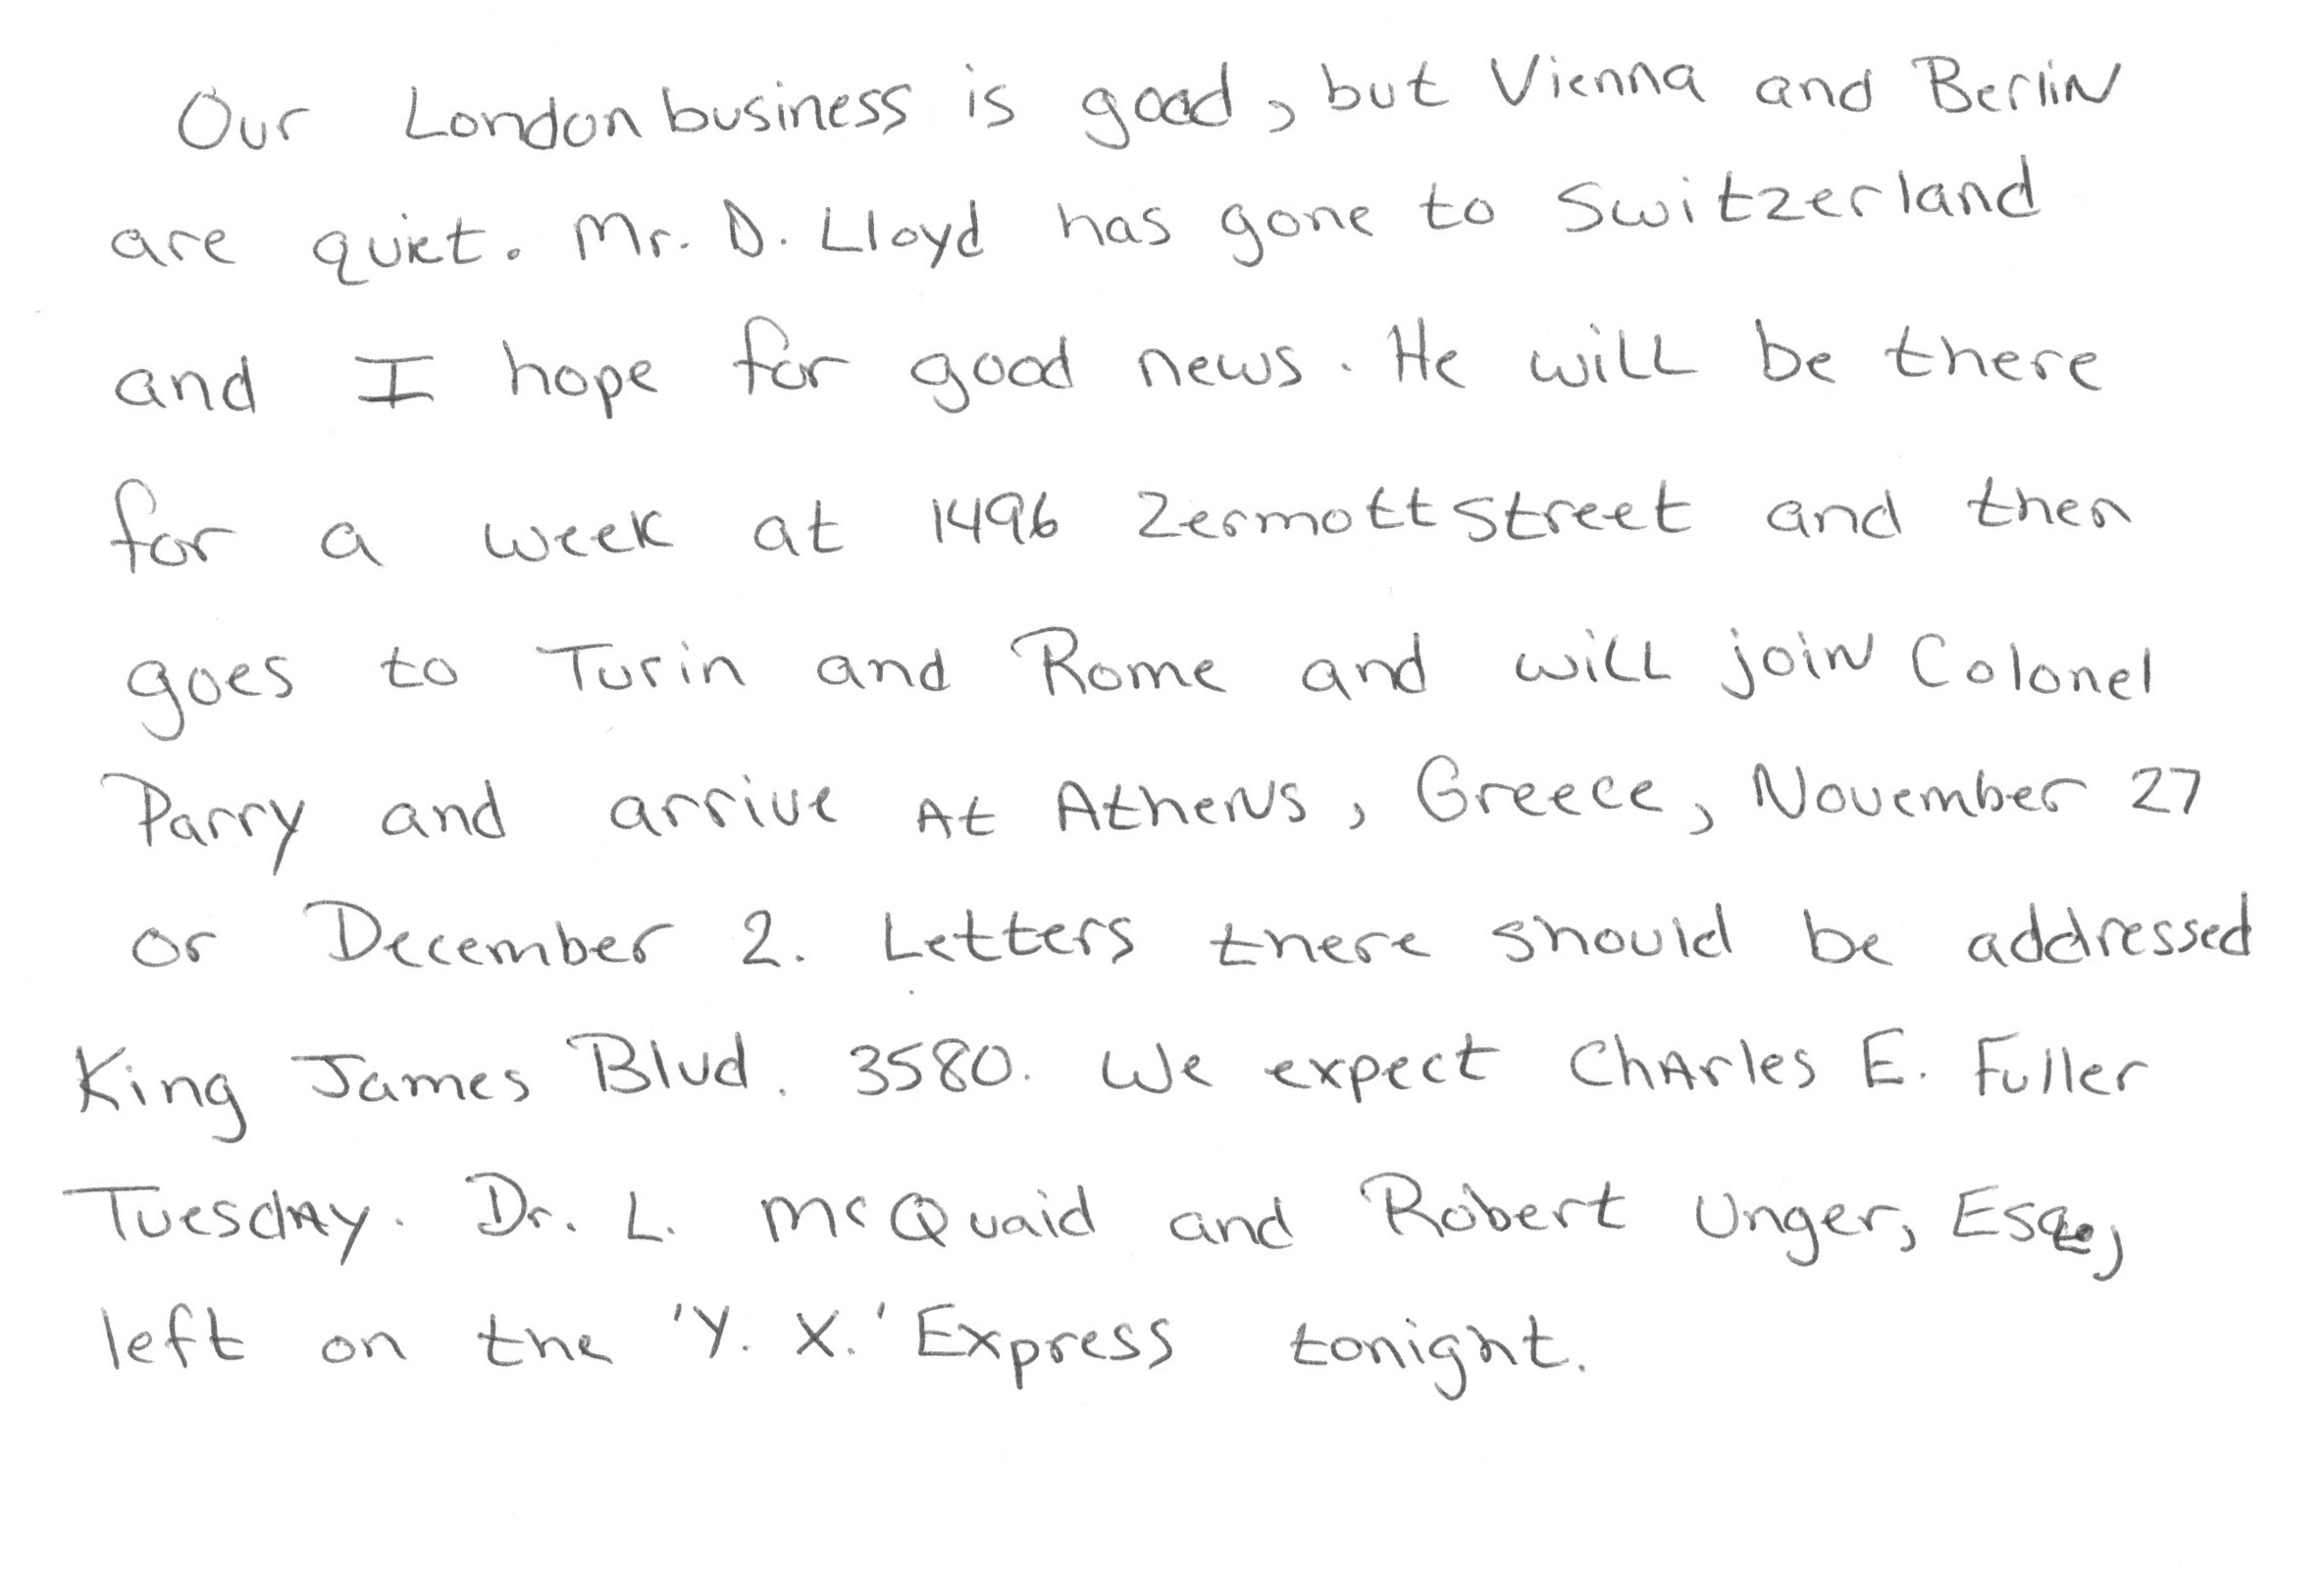 Our London business is good, but Vienna and Berlin
are quiet. Mr. D. Lloyd has gone to Switzerland
and I hope for good news. He will be there
for a week at 1496 Zermott Street and then
goes to Turin and Rome and will join Colonel
Parry and arrive At Athens, Greece, November 27
or December 2. Letters there should be addressed
King James Blvd. 3580. We expect Charles E. Fuller
Tuesday. Dr. L. McQuaid and Robert Unger, Esq.,
left on the 'Y. X.' Express tonight.